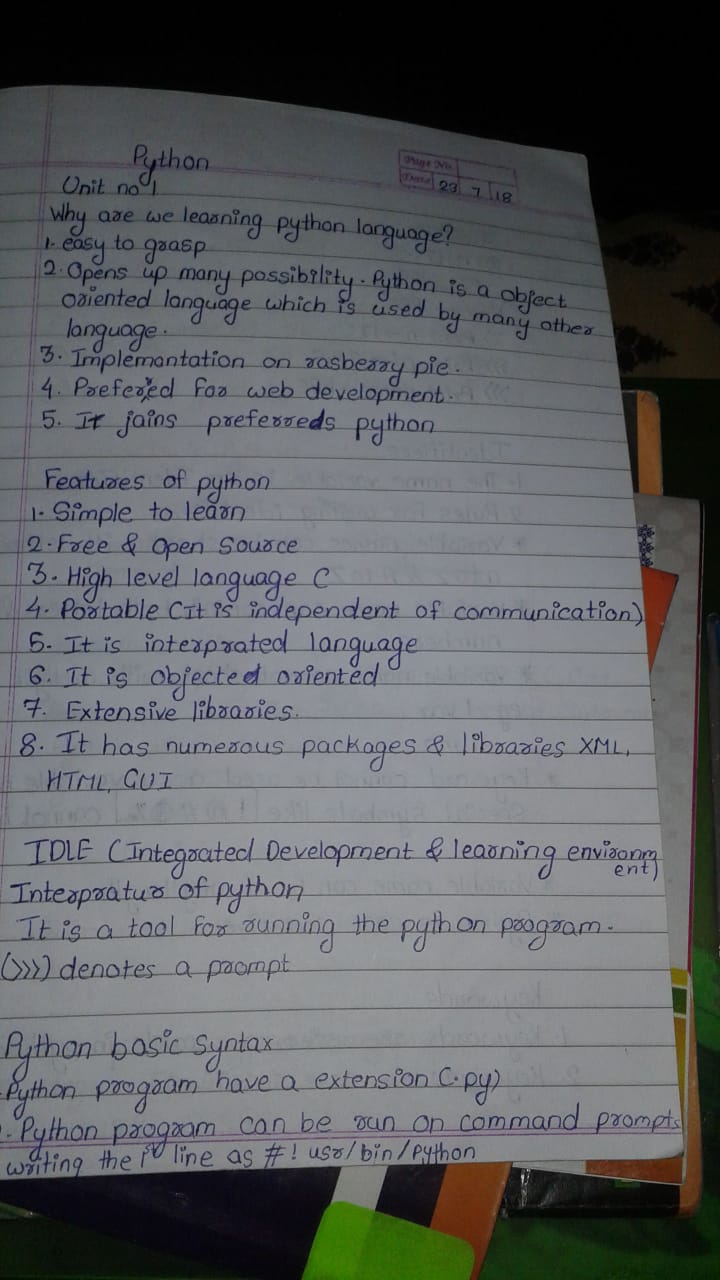 Python
Page No.
Date 23 7 18
Unit no 1
Why are we learning python language?
1. easy to grasp
2. Opens up many possibility. Python is a object
oriented language which is used by many other
language.
3. Implemantation on rasberry pie.
4. Prefered for web development.
5. It jains preferreds python
Features of python
1. Simple to learn
2. Free & Open Source
3. High level language C
4. Portable (it is independent of communication)
5. It is interprated language
6. It is objected oriented
7. Extensive libraries.
8. It has numerous packages & libraries XML,
HTML, GUI
IDLE (Integrated Development & learning environm
ent)
Interpratur of python
It is a tool for running the python program.
(>>>) denotes a prompt
Python basic Syntax
Python program have a extension (.py)
- Python program can be run on command prompts
writing the 1st line as #! usr/bin/Python